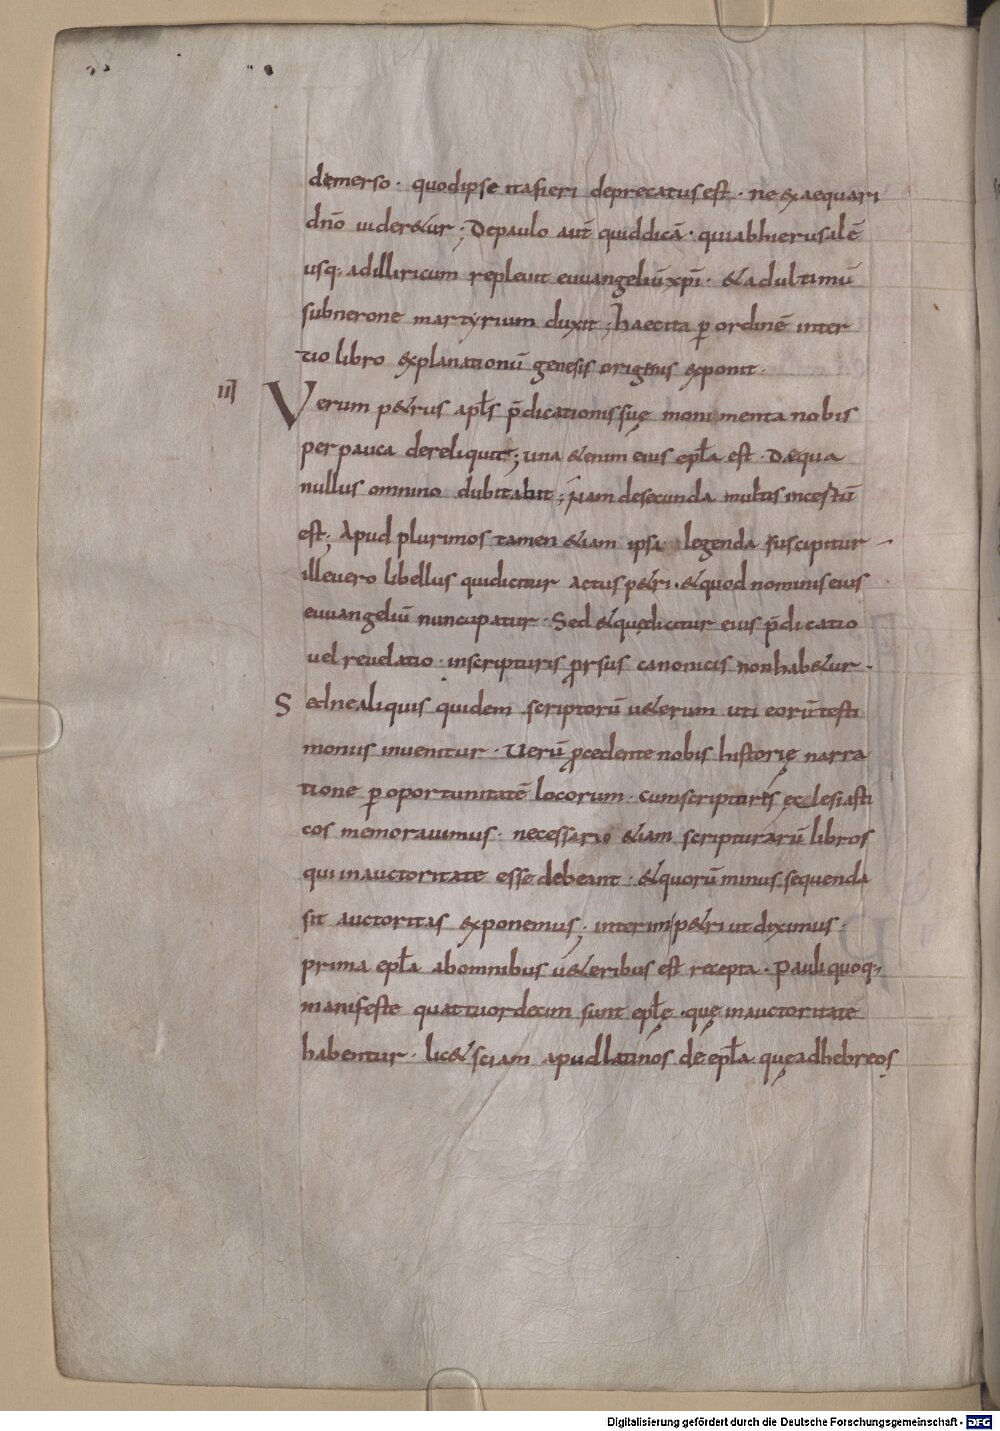 demerso · quodipse itafieri deprecatus est · ne exaequari
dn̄o uideretur ; Depaulo aut̄ quiddicā · quiabhierusalē
usq; adilliricum repleuit euuangeliū xp̄i · &adultimū
subnerone martyrium duxit ; haecita p̄ ordinē inter
tio libro explanationū genesis origenis exponit ·
II Verum p&rus apl̄s p̄dicationissuę monimenta nobis
perpauca dereliquit ; una &enim eius epl̄a est · Dequa
nullus omnino dubitabit ; Nam desecunda multis incertū
est ; Apud plurimos tamen &iam ipsa legenda suscipitur
illeuero libellus quidicitur actus p&ri · &quod nominis eius
euuangeliū nuncupatur · Sed &quędicitur eius p̄dicatio
uel reuelatio · inscripturis p̄rsus canonicis nonhab&ur ·
Sednealiquis quidem scriptorū u&erum uti eorū testi
moniis inuenitur · Uerū p̄cedente nobis historię narra
tione p̄ oportunitatē locorum · cumscripturis ęcclesiasti
cos memorauimus · necessario &iam scripturarū libros
qui inauctoritate esse debeant · &quorū minus sequenda
sit auctoritas exponemus ; interim p&ri ut diximus ·
prima epl̄a abomnibus u&eribus est recepta · Pauli quoq;
manifeste quattuordecim sunt epl̄ę · quę inauctoritate
habentur · lic& sciam apudlatinos de epl̄a quęadhebreos
Digitalisierung gefördert durch die Deutsche Forschungsgemeinschaft - DFG